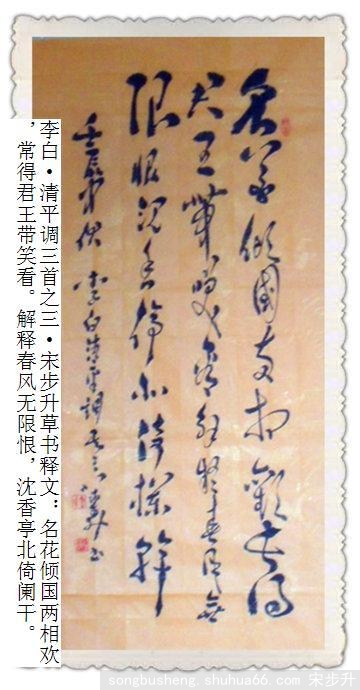 名花倾國两相歡长得
君王帶笑看解釋春風無
限恨沉香亭北倚欄幹
壬辰 李白清平调其三 步升书
李白·清平调三首之三·宋步升草书释文：名花倾国两相欢
，常得君王带笑看。解释春风无限恨，沈香亭北倚阑干。
songbusheng.shuhua66.com 宋步升